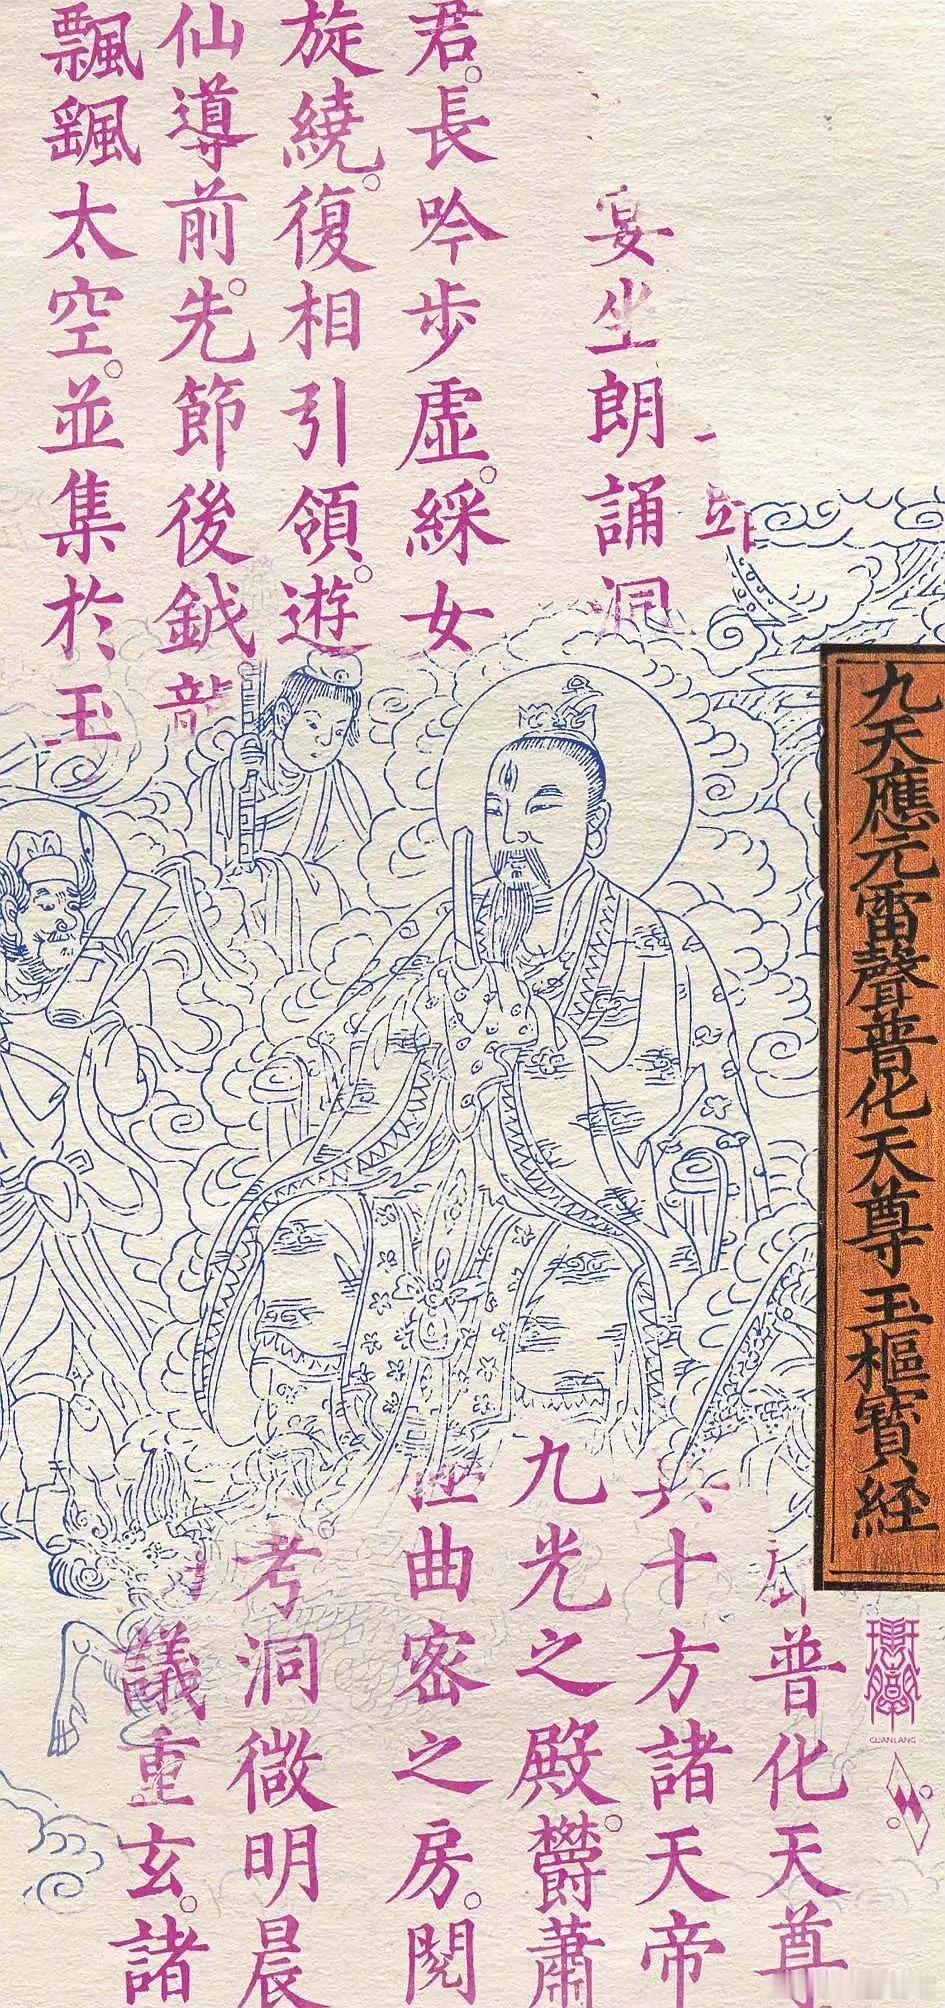 九天應元雷聲普化天尊玉樞寶経
宴坐朗誦洞
君。長吟步虛。綵女
旋繞。復相引領。遊
仙導前。先節後鉞龍
飄颻太空。並集於玉
普化天尊
十方諸天帝
九光之殿。鬱蕭
曲密之房。閱
考洞微明晨
議重玄。諸
GUANLANG